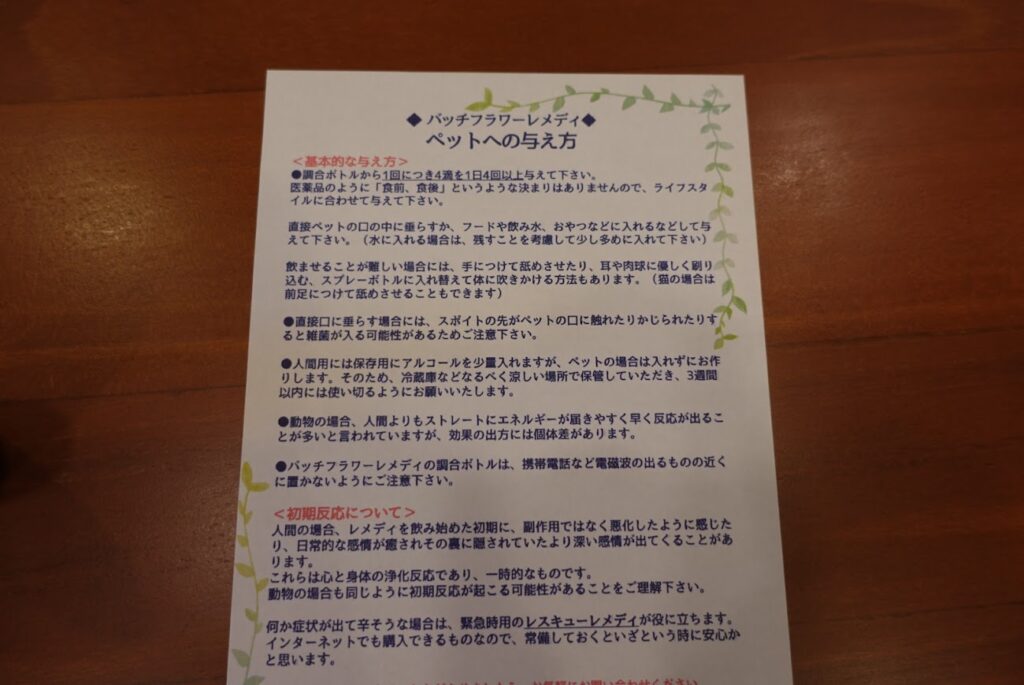 ◆ バッチフラワーレメディ◆
ペットへの与え方
＜基本的な与え方＞
●調合ボトルから1回につき4滴を1日4回以上与えて下さい。
医薬品のように「食前、食後」というような決まりはありませんので、ライフスタ
イルに合わせて与えて下さい。
直接ペットの口の中に垂らすか、フードや飲み水、おやつなどに入れるなどして与
えて下さい。（水に入れる場合は、残すことを考慮して少し多めに入れて下さい）
飲ませることが難しい場合には、手につけて舐めさせたり、耳や肉球に優しく刷り
込む、スプレーボトルに入れ替えて体に吹きかける方法もあります。（猫の場合は
前足につけて舐めさせることもできます）
●直接口に垂らす場合には、スポイトの先がペットの口に触れたりかじられたりす
ると雑菌が入る可能性があるためご注意下さい。
●人間用には保存用にアルコールを少量入れますが、ペットの場合は入れずにお作
りします。そのため、冷蔵庫などなるべく涼しい場所で保管していただき、3週間
以内には使い切るようにお願いいたします。
●動物の場合、人間よりもストレートにエネルギーが届きやすく早く反応が出るこ
とが多いと言われていますが、効果の出方には個体差があります。
●バッチフラワーレメディの調合ボトルは、携帯電話など電磁波の出るものの近く
に置かないようにご注意下さい。
＜初期反応について＞
人間の場合、レメディを飲み始めた初期に、副作用ではなく悪化したように感じた
り、日常的な感情が癒されその裏に隠されていたより深い感情が出てくることがあ
ります。
これらは心と身体の浄化反応であり、一時的なものです。
動物の場合も同じように初期反応が起こる可能性があることをご理解下さい。
何か症状が出て辛そうな場合は、緊急時用のレスキューレメディが役に立ちます。
インターネットでも購入できるものなので、常備しておくといざという時に安心か
と思います。